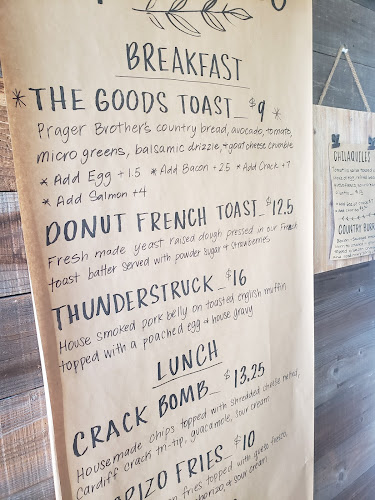 BREAKFAST
* THE GOODS TOAST_ $9 *
Prager Brother's country bread, avocado, tomato,
micro greens, balsamic drizzle, + goat cheese crumble
* Add Egg +1.5 * Add Bacon +2.5 * Add Crack +7
* Add Salmon +4
DONUT FRENCH TOAST_$12.5
Fresh made yeast raised dough pressed in our French
toast batter served with powder sugar + strawberries
THUNDERSTRUCK_$16
House smoked pork belly on toasted english muffin
topped with a poached egg + house gravy
LUNCH
CRACK BOMB_$13.25
Housemade chips topped with shredded cheese
Cardiff crack tri-tip, guacamole, sour cream
RIZO FRIES_$10
fries topped with queso fresco,
chorizo, + sour cream
CHILAQUILES
COUNTRY